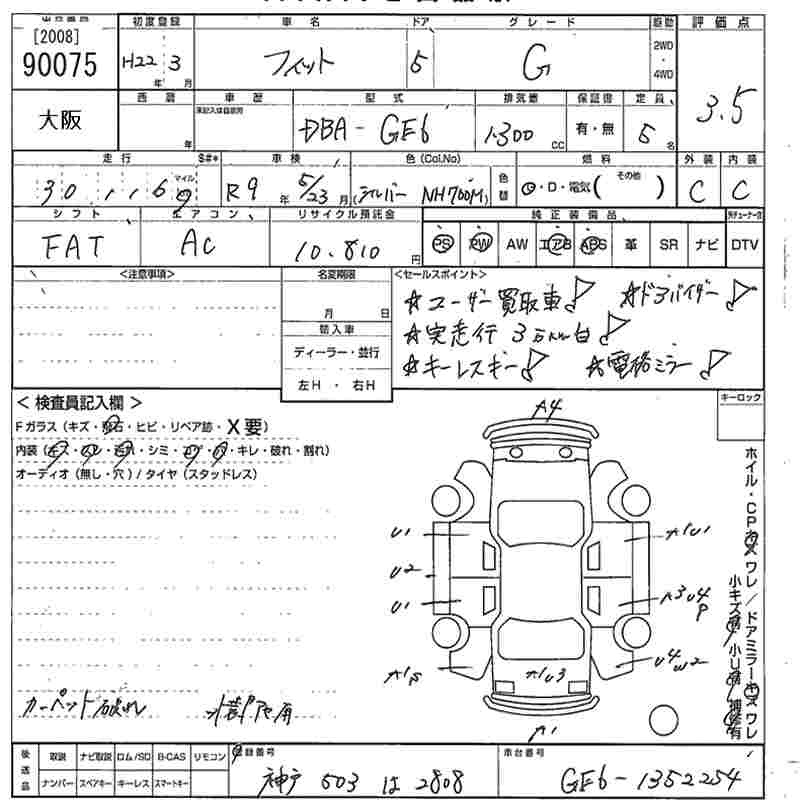 [2008]
90075
大阪
初度登録 車名 ドア グレード 駆動 評価点
H22 年 3 月 フィット 5 G 2WD・4WD 3.5
西暦 年 車歴 型式 排気量 保証書 定員
未記入は自家用 DBA-GE6 1300 cc 有・無 5 名
走行 マイル $#* 車検 色(Col,No) 色替 燃料 その他 外装 内装
R9 年 5/23 (シルバー NH700M) ・D・電気( ) C C
シフト エアコン リサイクル預託金 純正装備品
FAT AC 10.810 円 PS PW AW エアB ABS 革 SR ナビ DTV
<注意事項> 名変期限 <セールスポイント>
月 日
輸入車
ディーラー・並行
左H・右H
☆ユーザー買取車! ☆ドアバイザー!
☆実走行 3万km台!
☆キーレスキー! ☆電格ミラー!
<検査員記入欄> キーロック
Fガラス(キズ・飛石・ヒビ・リペア跡・X要)
内装(キズ・スレ・汚れ・シミ・コゲ・穴・キレ・破れ・割れ)
オーディオ(無し・穴)/タイヤ(スタッドレス)
A4
U1 A1U1
U2
U1 A3U4 P
A1P U4 W2
A1U3
A1
ホイル・CPキズワレ/ドアミラーキズワレ
カーペット破れ
後送品 取説 ナビ取説 ロム/SD B-CAS リモコン 登録番号 車台番号
ナンバー スペアキー キーレス スマートキー 神戸 503 は 2808 GE6-1352254